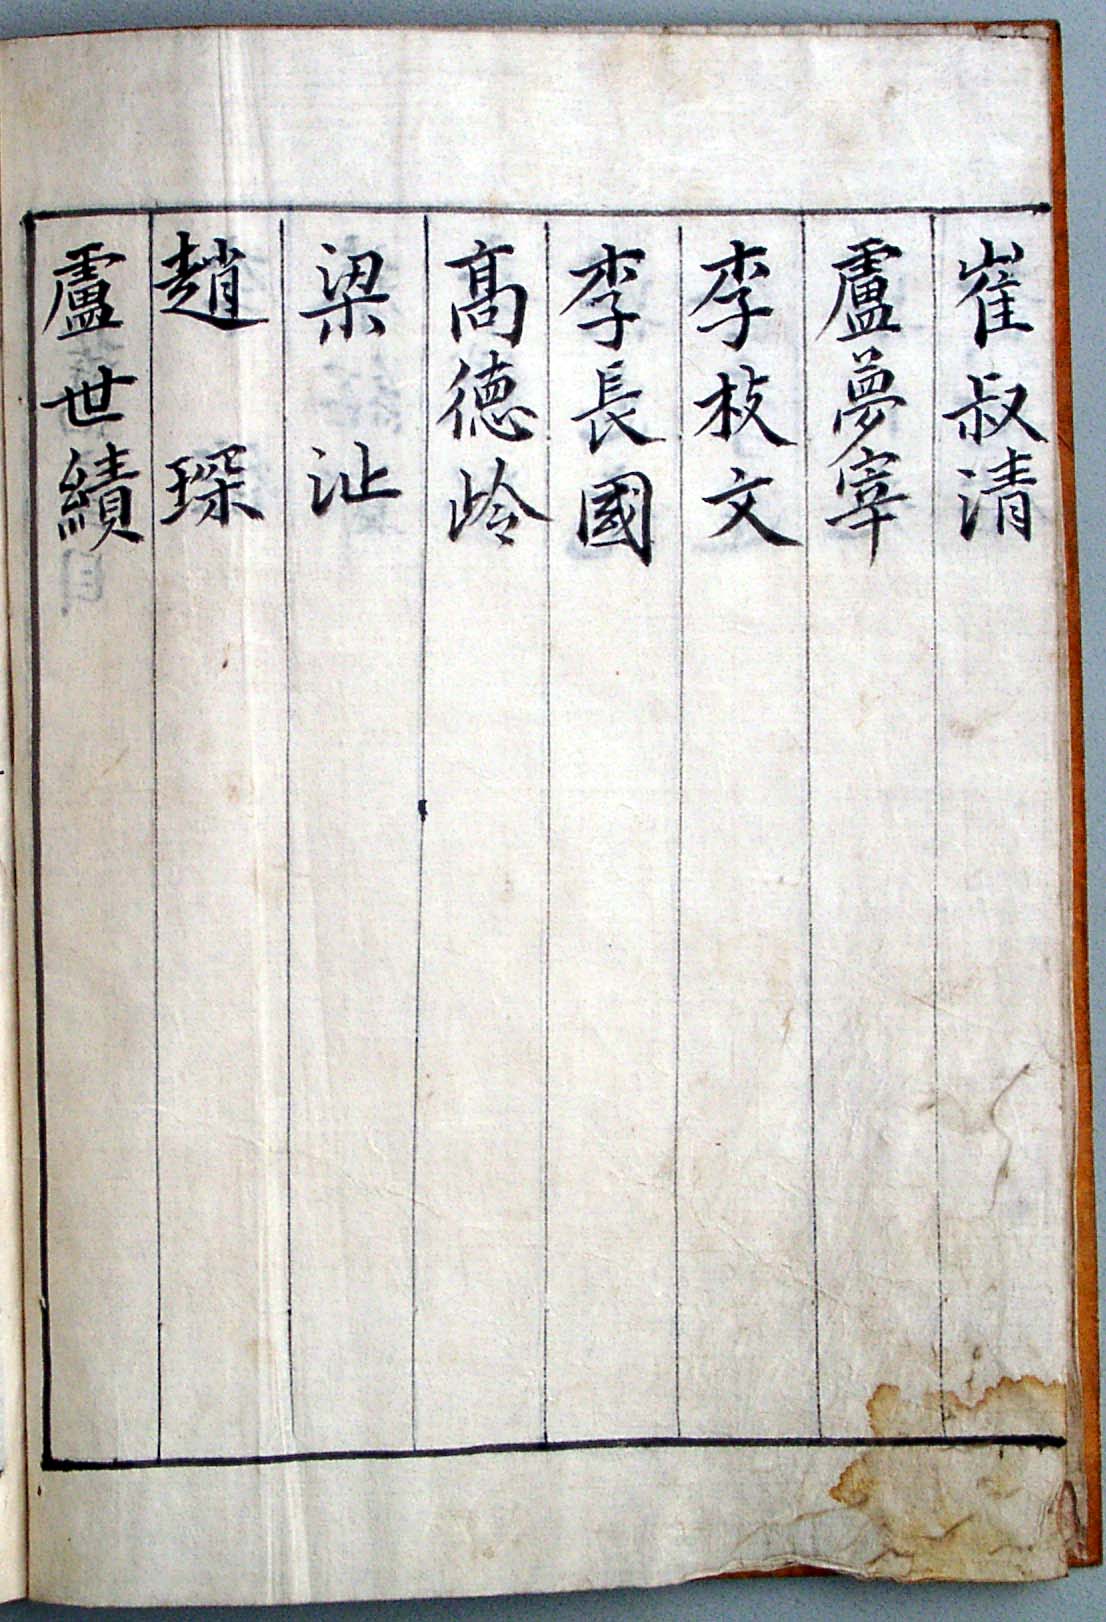 崔叔清
盧夢宰
李枝文
李長國
高德岭
梁沚
趙琛
盧世績